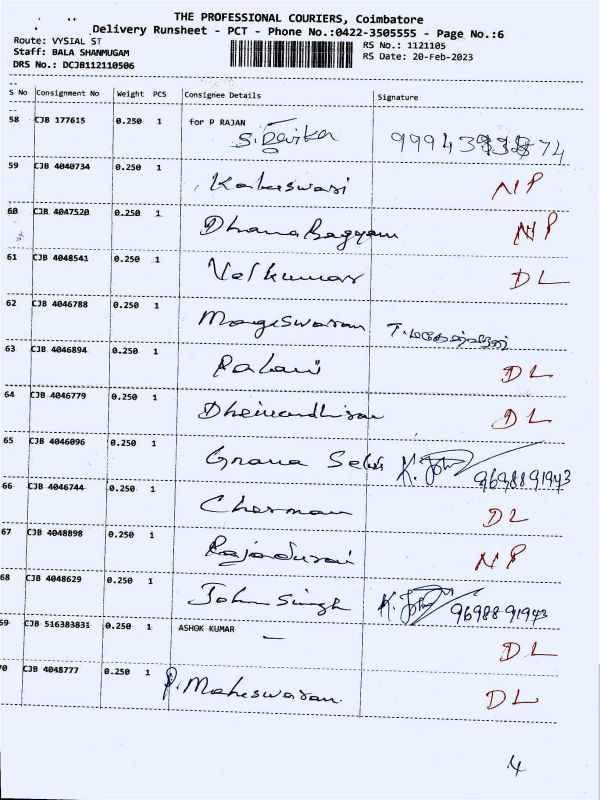 THE PROFESSIONAL COURIERS, Coimbatore
Delivery Runsheet - PCT - Phone No.:0422-3505555 - Page No.:6
Route: VYSIAL ST RS No.: 1121105
Staff: BALA SHANMUGAM RS Date: 20-Feb-2023
DRS No.: DCJB112110506
S No Consignment No Weight PCS Consignee Details Signature
58 CJB 177615 0.250 1 for P RAJAN
S. Devika
59 CJB 4040734 0.250 1 NP
60 CJB 4047520 0.250 1 Dhana Bagyam NP
61 CJB 4048541 0.250 1 Velkumar DL
62 CJB 4046788 0.250 1 Mageswaran
63 CJB 4046894 0.250 1 Palani DL
64 CJB 4046779 0.250 1 DL
65 CJB 4046096 0.250 1 Gnana K. John 9698891943
66 CJB 4046744 0.250 1 Cherman DL
67 CJB 4048898 0.250 1 Rajadurai NP
68 CJB 4048629 0.250 1 John Singh K. John 9698891943
69 CJB 516383831 0.250 1 ASHOK KUMAR DL
70 CJB 4048777 0.250 1 P. Maheswaran. DL
4